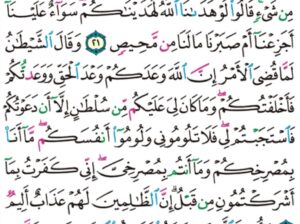 مِن شَىْءٍۚ قَالُوا۟ لَوْ هَدَىٰنَا ٱللَّهُ لَهَدَيْنَٰكُمْۖ سَوَآءٌ عَلَيْنَآ
أَجَزِعْنَآ أَمْ صَبَرْنَا مَا لَنَا مِن مَّحِيصٍ ٢١ وَقَالَ ٱلشَّيْطَٰنُ
لَمَّا قُضِىَ ٱلْأَمْرُ إِنَّ ٱللَّهَ وَعَدَكُمْ وَعْدَ ٱلْحَقِّ وَوَعَدتُّكُمْ
فَأَخْلَفْتُكُمْۖ وَمَا كَانَ لِىَ عَلَيْكُم مِّن سُلْطَٰنٍ إِلَّآ أَن دَعَوْتُكُمْ
فَٱسْتَجَبْتُمْ لِىۖ فَلَا تَلُومُونِى وَلُومُوٓا۟ أَنفُسَكُمۖ مَّآ أَنَا۠
بِمُصْرِخِكُمْ وَمَآ أَنتُم بِمُصْرِخِىَّۖ إِنِّى كَفَرْتُ بِمَآ
أَشْرَكْتُمُونِ مِن قَبْلُۗ إِنَّ ٱلظَّٰلِمِينَ لَهُمْ عَذَابٌ أَلِيمٌ